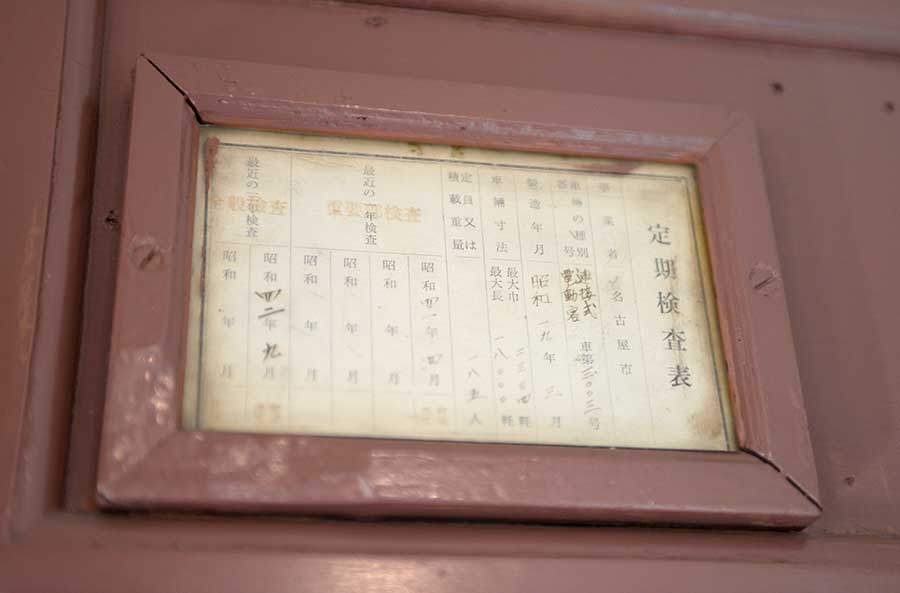 定期検査表
事業者名 名古屋市
車輛の種別 連接式電動客車第三〇〇三号
番号
製造年月 昭和一九年三月
車輛寸法 最大巾 二三〇四粍
最大長 一八〇〇〇粍
定員又は 一八五人
積載重量
最近の二年検査
重要部検査
昭和四一年四月
昭和 年 月
昭和 年 月
昭和 年 月
最近の 年検査
全般検査
昭和四二年九月
昭和 年 月